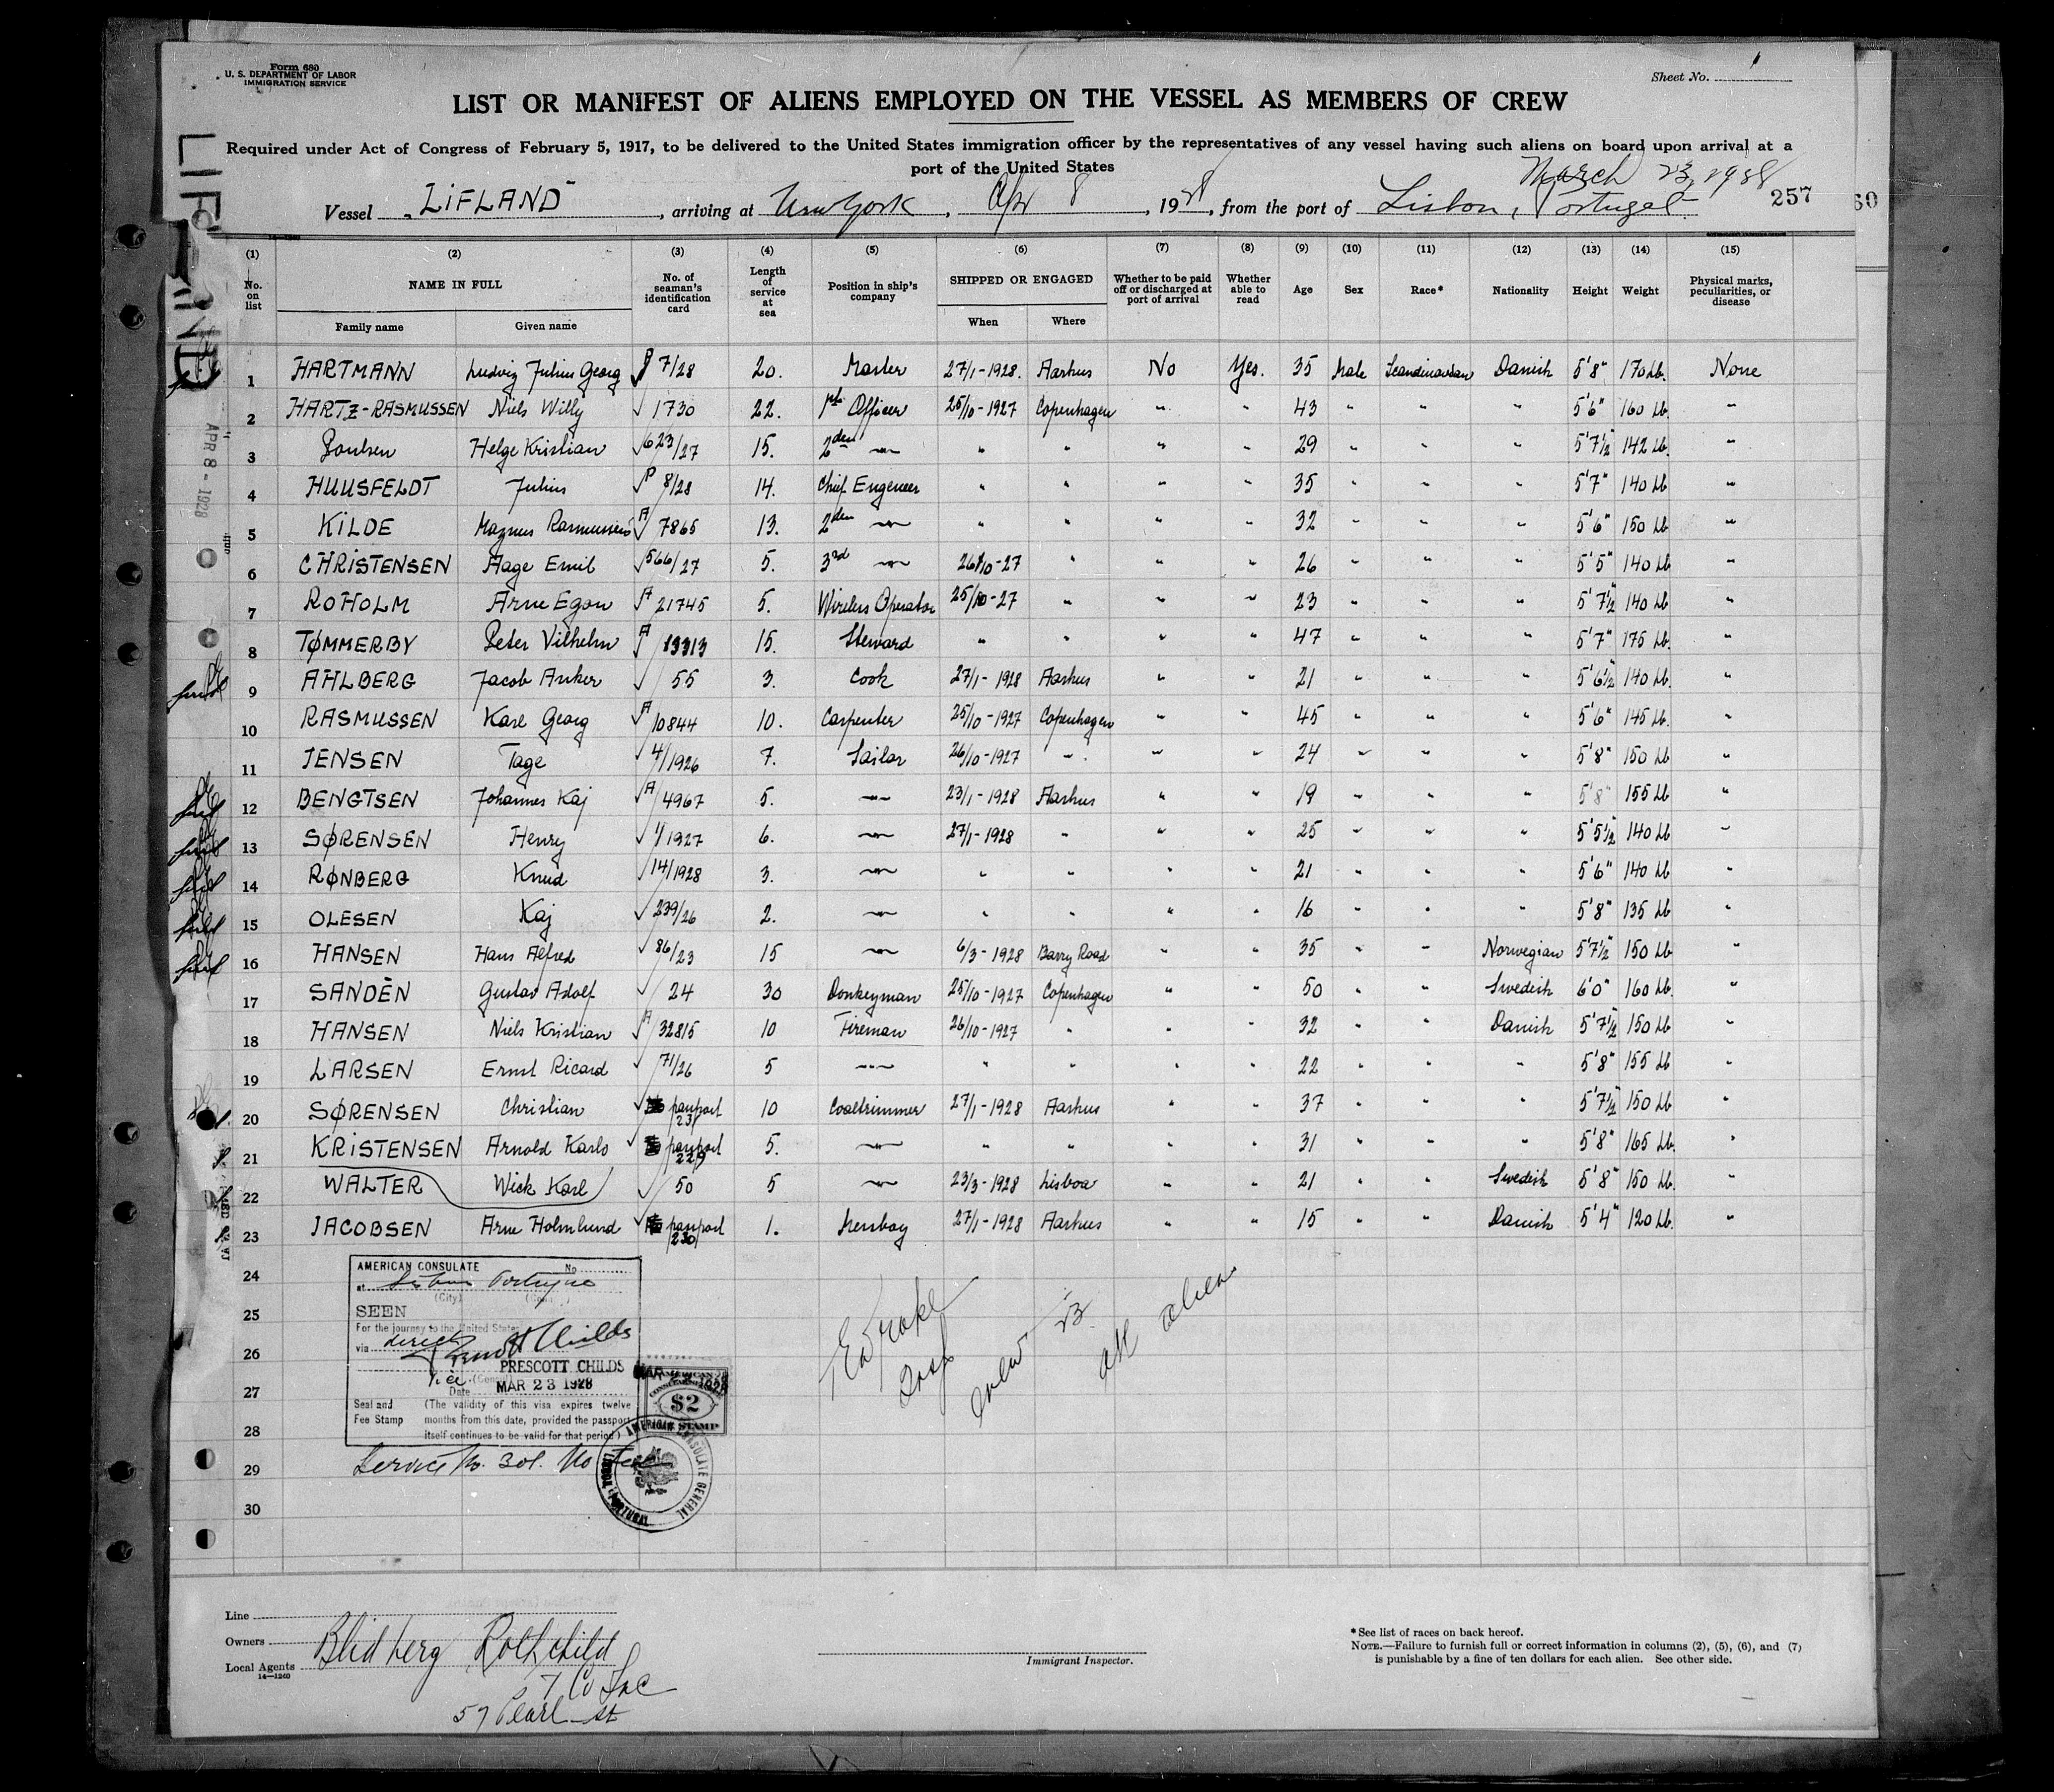 Form 680
U. S. DEPARTMENT OF LABOR
IMMIGRATION SERVICE
Sheet No. 1
LIST OR MANIFEST OF ALIENS EMPLOYED ON THE VESSEL AS MEMBERS OF CREW
Required under Act of Congress of February 5, 1917, to be delivered to the United States immigration officer by the representatives of any vessel having such aliens on board upon arrival at a
port of the United States
March 23, 1928
Vessel LIFLAND, arriving at New York, Apr 8, 1928, from the port of Lisbon, Portugal 257
60
LIFLAND
APR 8 - 1928
(1) (2) (3) (4) (5) (6) (7) (8) (9) (10) (11) (12) (13) (14) (15)
No. on list NAME IN FULL Family name Given name No. of seaman's identification card Length of service at sea Position in ship's company SHIPPED OR ENGAGED When Where Whether to be paid off or discharged at port of arrival Whether able to read Age Sex Race* Nationality Height Weight Physical marks, peculiarities, or disease
1 HARTMANN Ludvig Julius Georg P 7/28 20. Master 27/1-1928. Aarhus No Yes. 35 Male Scandinavian Danish 5'8" 170 Lb. None
2 HARTZ-RASMUSSEN Niels Willy 1730 22. 1st Officer 25/10-1927 Copenhagen " " 43 " " " 5'6" 160 Lb. "
3 Poulsen Helge Kristian 623/27 15. 2den " " " " " 29 " " " 5'7½" 142 Lb. "
4 HUUSFELDT Julius P 8/28 14. Chief Engeneer " " " " 35 " " " 5'7" 140 Lb "
5 KILDE Magnus Rasmussen A 7865 13. 2den " " " " " 32 " " " 5'6" 150 Lb "
6 CHRISTENSEN Aage Emil 566/27 5. 3rd " 26/10-27 " " " 26 " " " 5'5" 140 Lb "
7 ROHOLM Arne Egon A 21745 5. Wireless Operator 25/10-27 " " " 23 " " " 5'7½" 140 Lb "
8 TØMMERBY Peter Vilhelm A 13313 15. Steward " " " " 47 " " " 5'7" 175 Lb. "
9 AHLBERG Jacob Anker 55 3. Cook 27/1-1928 Aarhus " " 21 " " " 5'6½" 140 Lb. "
10 RASMUSSEN Karl Georg A 10844 10. Carpenter 25/10-1927 Copenhagen " " 45 " " " 5'6" 145 Lb. "
11 JENSEN Tage 4/1926 7. Sailor 26/10-1927 " " " 24 " " " 5'8" 150 Lb "
12 BENGTSEN Johannes Kaj A 4967 5. " 23/1-1928 Aarhus " " 19 " " " 5'8" 155 Lb "
13 SØRENSEN Henry 1/1927 6. " 27/1-1928 " " " 25 " " " 5'5½" 140 Lb "
14 RØNBERG Knud 14/1928 3. " " " " " 21 " " " 5'6" 140 Lb "
15 OLESEN Kaj 239/26 2. " " " " " 16 " " " 5'8" 135 Lb "
16 HANSEN Hans Alfred 86/23 15 " 6/3-1928 Barry Road " " 35 " " Norwegian 5'7½" 150 Lb "
17 SANDÉN Gustav Adolf 24 30 Donkeyman 25/10-1927 Copenhagen " " 50 " " Swedish 6'0" 160 Lb. "
18 HANSEN Niels Kristian A 32815 10 Fireman 26/10-1927 " " " 32 " " Danish 5'7½" 150 Lb "
19 LARSEN Ernst Ricard 71/26 5 " " " " " 22 " " " 5'8" 155 Lb "
20 SØRENSEN Christian passport 231 10 Coaltrimmer 27/1-1928 Aarhus " " 37 " " " 5'7½" 150 Lb "
21 KRISTENSEN Arnold Karlo passport 229 5. " " " " " 31 " " " 5'8" 165 Lb. "
22 WALTER Wick Karl 50 5 " 23/3-1928 Lisboa " " 21 " " Swedish 5'8" 150 Lb. "
23 JACOBSEN Arne Holmlund passport 230 1. Messboy 27/1-1928 Aarhus " " 15 " " Danish 5'4" 120 Lb. "
24
25
26
27
28
29
30
AMERICAN CONSULATE No
at Lisbon Portugal
(City)
SEEN
For the journey to the United States
via direct
Prescott Childs
PRESCOTT CHILDS
Vice (Consul)
Date MAR 23 1928
Seal and Fee Stamp (The validity of this visa expires twelve
months from this date, provided the passport
itself continues to be valid for that period)
Service No. 301. No fee
AMERICAN
$2
STAMP
AMERICAN CONSULATE GENERAL
LISBON, PORTUGAL
Insp
Crew 23
all alien
Line
Owners
Local Agents
14-1240
Blidberg Rothchild
& Co Inc
57 Pearl St
Immigrant Inspector.
*See list of races on back hereof.
NOTE.—Failure to furnish full or correct information in columns (2), (5), (6), and (7)
is punishable by a fine of ten dollars for each alien. See other side.